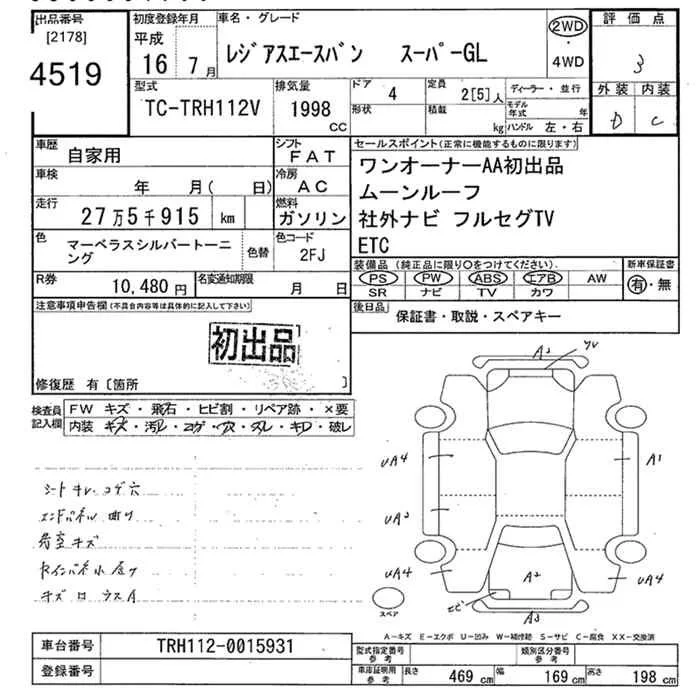 出品番号
[2178]
4519
初度登録年月
平成
16 年 7 月
車名・グレード
レジアスエースバン スーパーGL
2WD
・
4WD
評価点
3
外装 内装
D C
型式
TC-TRH112V
排気量
1998
CC
ドア
4
定員
2[5]人
形状
積載
kg
ディーラー・並行
モデル年式 年
ハンドル 左・右
車歴
自家用
シフト
FAT
車検
年 月( 日)
冷房
AC
走行
27万5千915 km
燃料
ガソリン
色
マーベラスシルバートーニング
色替
色コード
2FJ
R券
10,480円
名変通知期限
月 日
セールスポイント(正常に機能するものに限ります)
ワンオーナーAA初出品
ムーンルーフ
社外ナビ フルセグTV
ETC
装備品 (純正品に限り○をつけてください)
PS PW ABS エアB AW
SR ナビ TV カワ
新車保証書
有・無
後日品
保証書・取説・スペアキー
注意事項申告欄(不具合内容等は具体的に記入して下さい)
初出品
修復歴 有〔箇所 〕
検査員記入欄
FW キズ・飛石・ヒビ割・リペア跡・×要
内装 キズ・汚レ・コゲ・穴・スレ・キレ・破レ
シートキレ・コゲ穴
エンドパネル曲り
荷室キズ
キズ
A3
UA4
A1
UA4
UA4
A2
ヒビ
A3
スペア
A-キズ E-エクボ U-凹み W-補修跡 S-サビ C-腐食 XX-交換済
車台番号
TRH112-0015931
登録番号
型式指定番号
参考
類別区分番号
参考
車庫証明用
参考
長さ 469 cm 幅 169 cm 高さ 198 cm